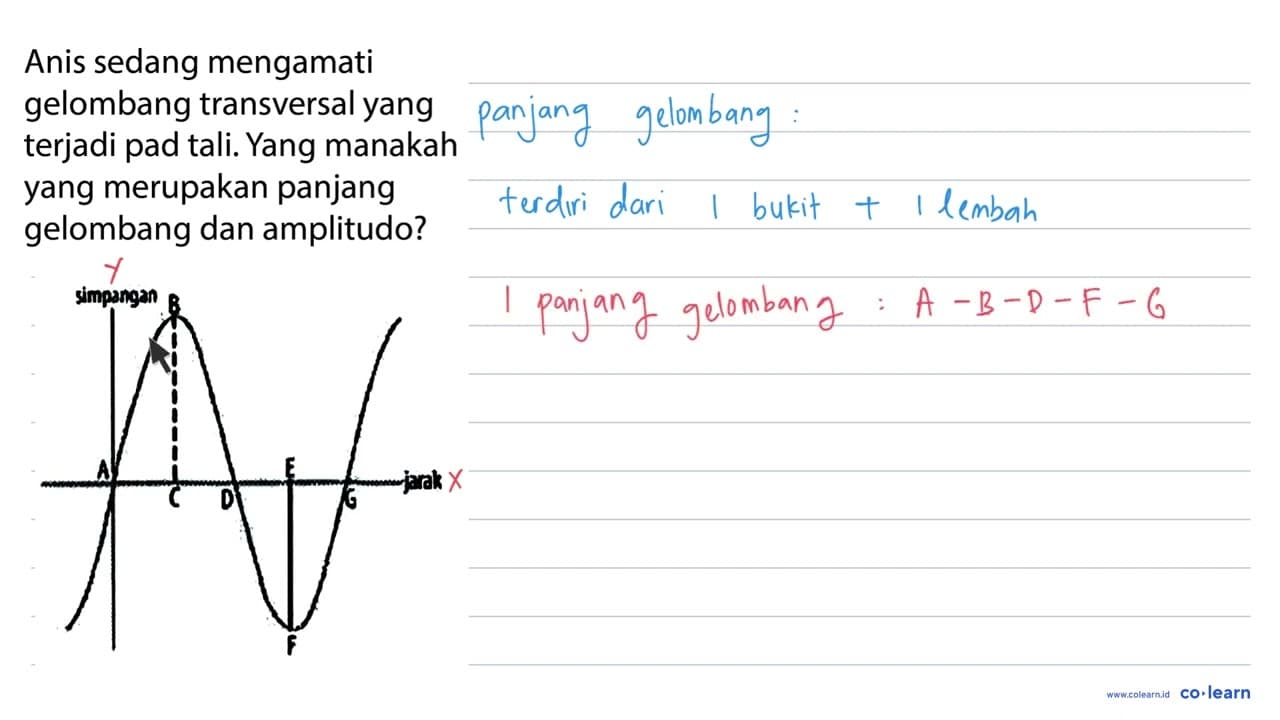 Anis sedang mengamati
gelombang transversal yang
terjadi pad tali. Yang manakah
yang merupakan panjang
gelombang dan amplitudo?
panjang gelombang :
terdiri dari 1 bukit + 1 lembah
1 panjang gelombang : A - B - D - F - G
Y
simpangan
B
A
E
C
D
G
jarak X
F
www.colearn.id co·learn